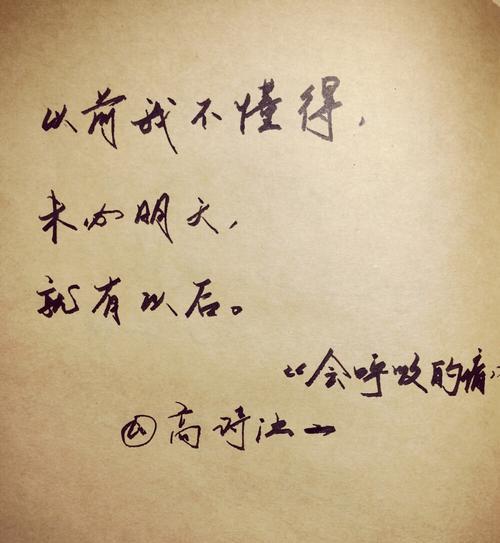 以前我不懂得,
未必明天,
就有以后。
“会呼吸的痛
高诗